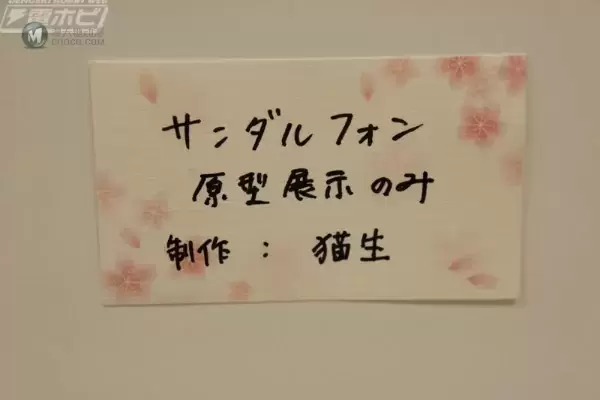 電ホビ
サンダルフォン
原型展示のみ
制作：猫生